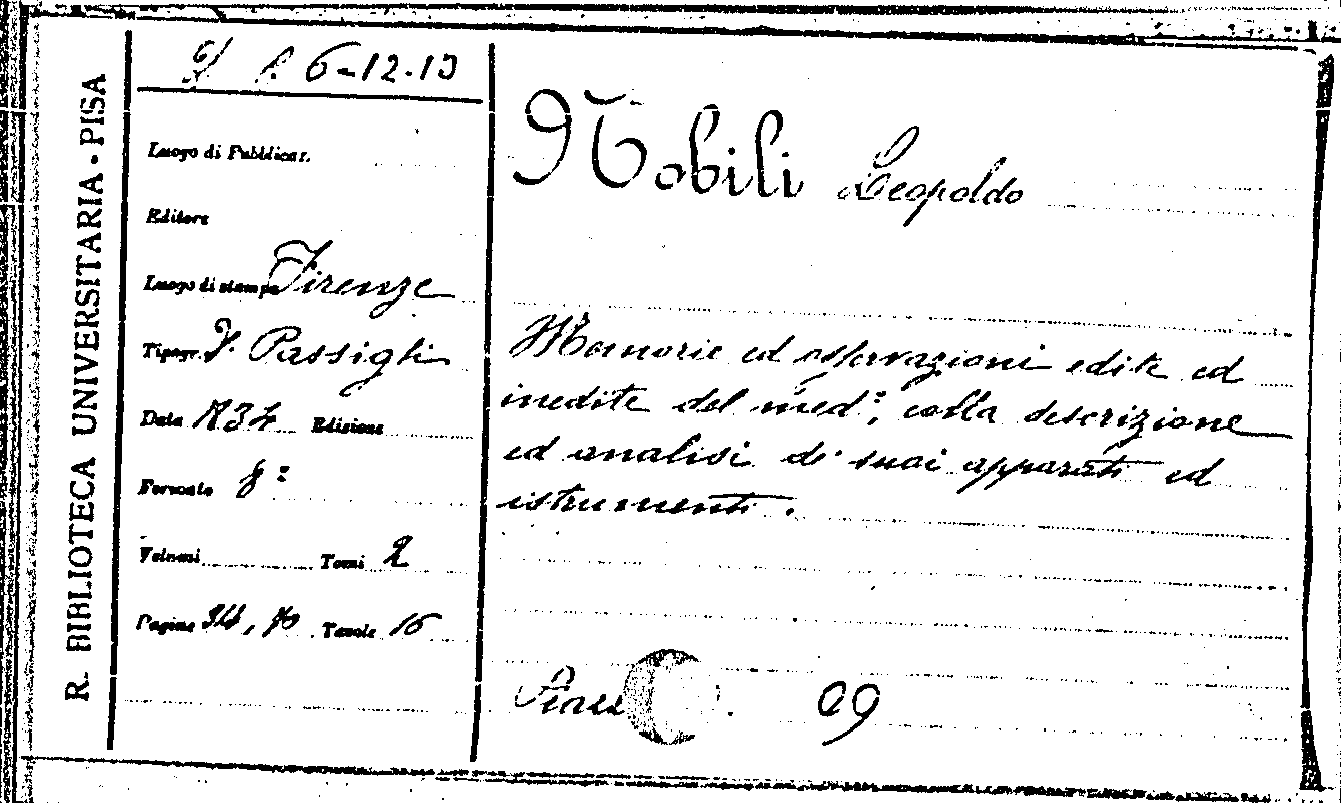 R. BIBLIOTECA UNIVERSITARIA - PISA
6-12.13
Luogo di Pubblicaz.
Editore
Luogo di stampa Firenze
Tipogr. Passigli
Data 1834 Edizione
Formato 8º
Volumi Tomi 2
Pagine Tavole 16
Nobili Leopoldo
Memorie ed osservazioni edite ed
inedite del med.º, colla descrizione
ed analisi de' suoi apparati ed
istrumenti.
09